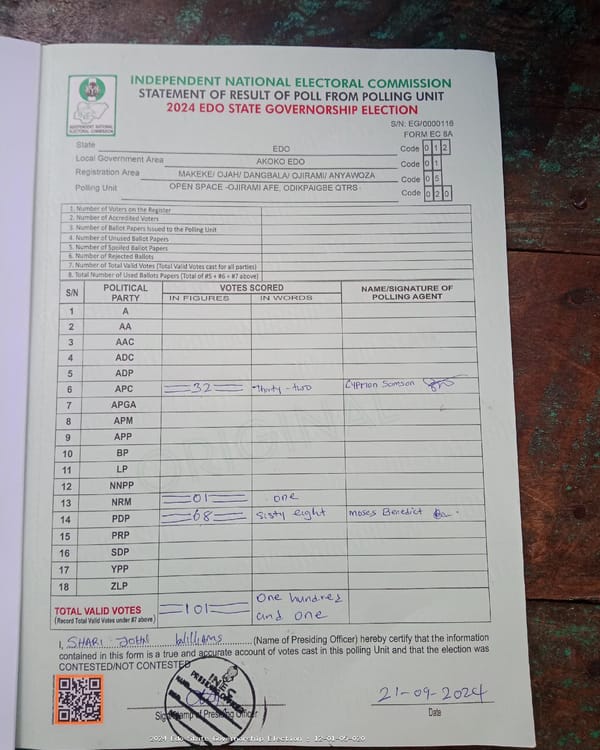 INDEPENDENT NATIONAL ELECTORAL COMMISSION
STATEMENT OF RESULT OF POLL FROM POLLING UNIT
2024 EDO STATE GOVERNORSHIP ELECTION
INEC
INDEPENDENT NATIONAL
ELECTORAL COMMISSION
S/N: EG/0000116
FORM EC 8A
State EDO Code 0 1 2
Local Government Area AKOKO EDO Code 0 1
Registration Area MAKEKE/ OJAH/ DANGBALA/ OJIRAMI/ ANYAWOZA Code 0 5
Polling Unit OPEN SPACE -OJIRAMI AFE, ODIKPAIGBE QTRS Code 0 2 0
1. Number of Voters on the Register
2. Number of Accredited Voters
3. Number of Ballot Papers Issued to the Polling Unit
4. Number of Unused Ballot Papers
5. Number of Spoiled Ballot Papers
6. Number of Rejected Ballots
7. Number of Total Valid Votes (Total Valid Votes cast for all parties)
8. Total Number of Used Ballots Papers (Total of #5 + #6 + #7 above)
S/N POLITICAL PARTY VOTES SCORED NAME/SIGNATURE OF POLLING AGENT
IN FIGURES IN WORDS
1 A
2 AA
3 AAC
4 ADC
5 ADP
6 APC 32 Thirty-two Cyprion Samson
7 APGA
8 APM
9 APP
10 BP
11 LP
12 NNPP
13 NRM 01 one
14 PDP 68 Sisty eight Moses Benedict
15 PRP
16 SDP
17 YPP
18 ZLP
ORIGINAL
TOTAL VALID VOTES 101 One hundred
(Record Total Valid Votes under #7 above) and one
I, SHARI JOHN Williams (Name of Presiding Officer) hereby certify that the information
contained in this form is a true and accurate account of votes cast in this polling Unit and that the election was
CONTESTED/NOT CONTESTED
INEC
PRESIDING OFFICER
21-09-2024
Sign/Stamp of Presiding Officer Date
2024 Edo State Governorship Election - 12-01-05-020